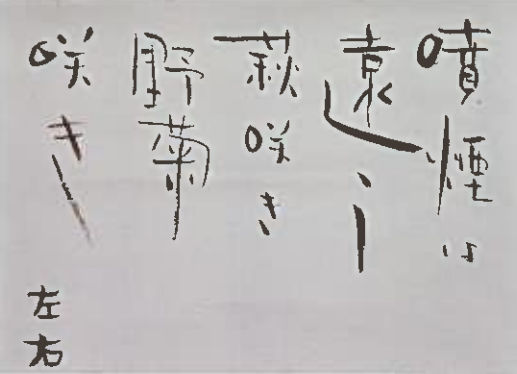 噴煙は
遠し
萩咲き
野菊
咲き
左右